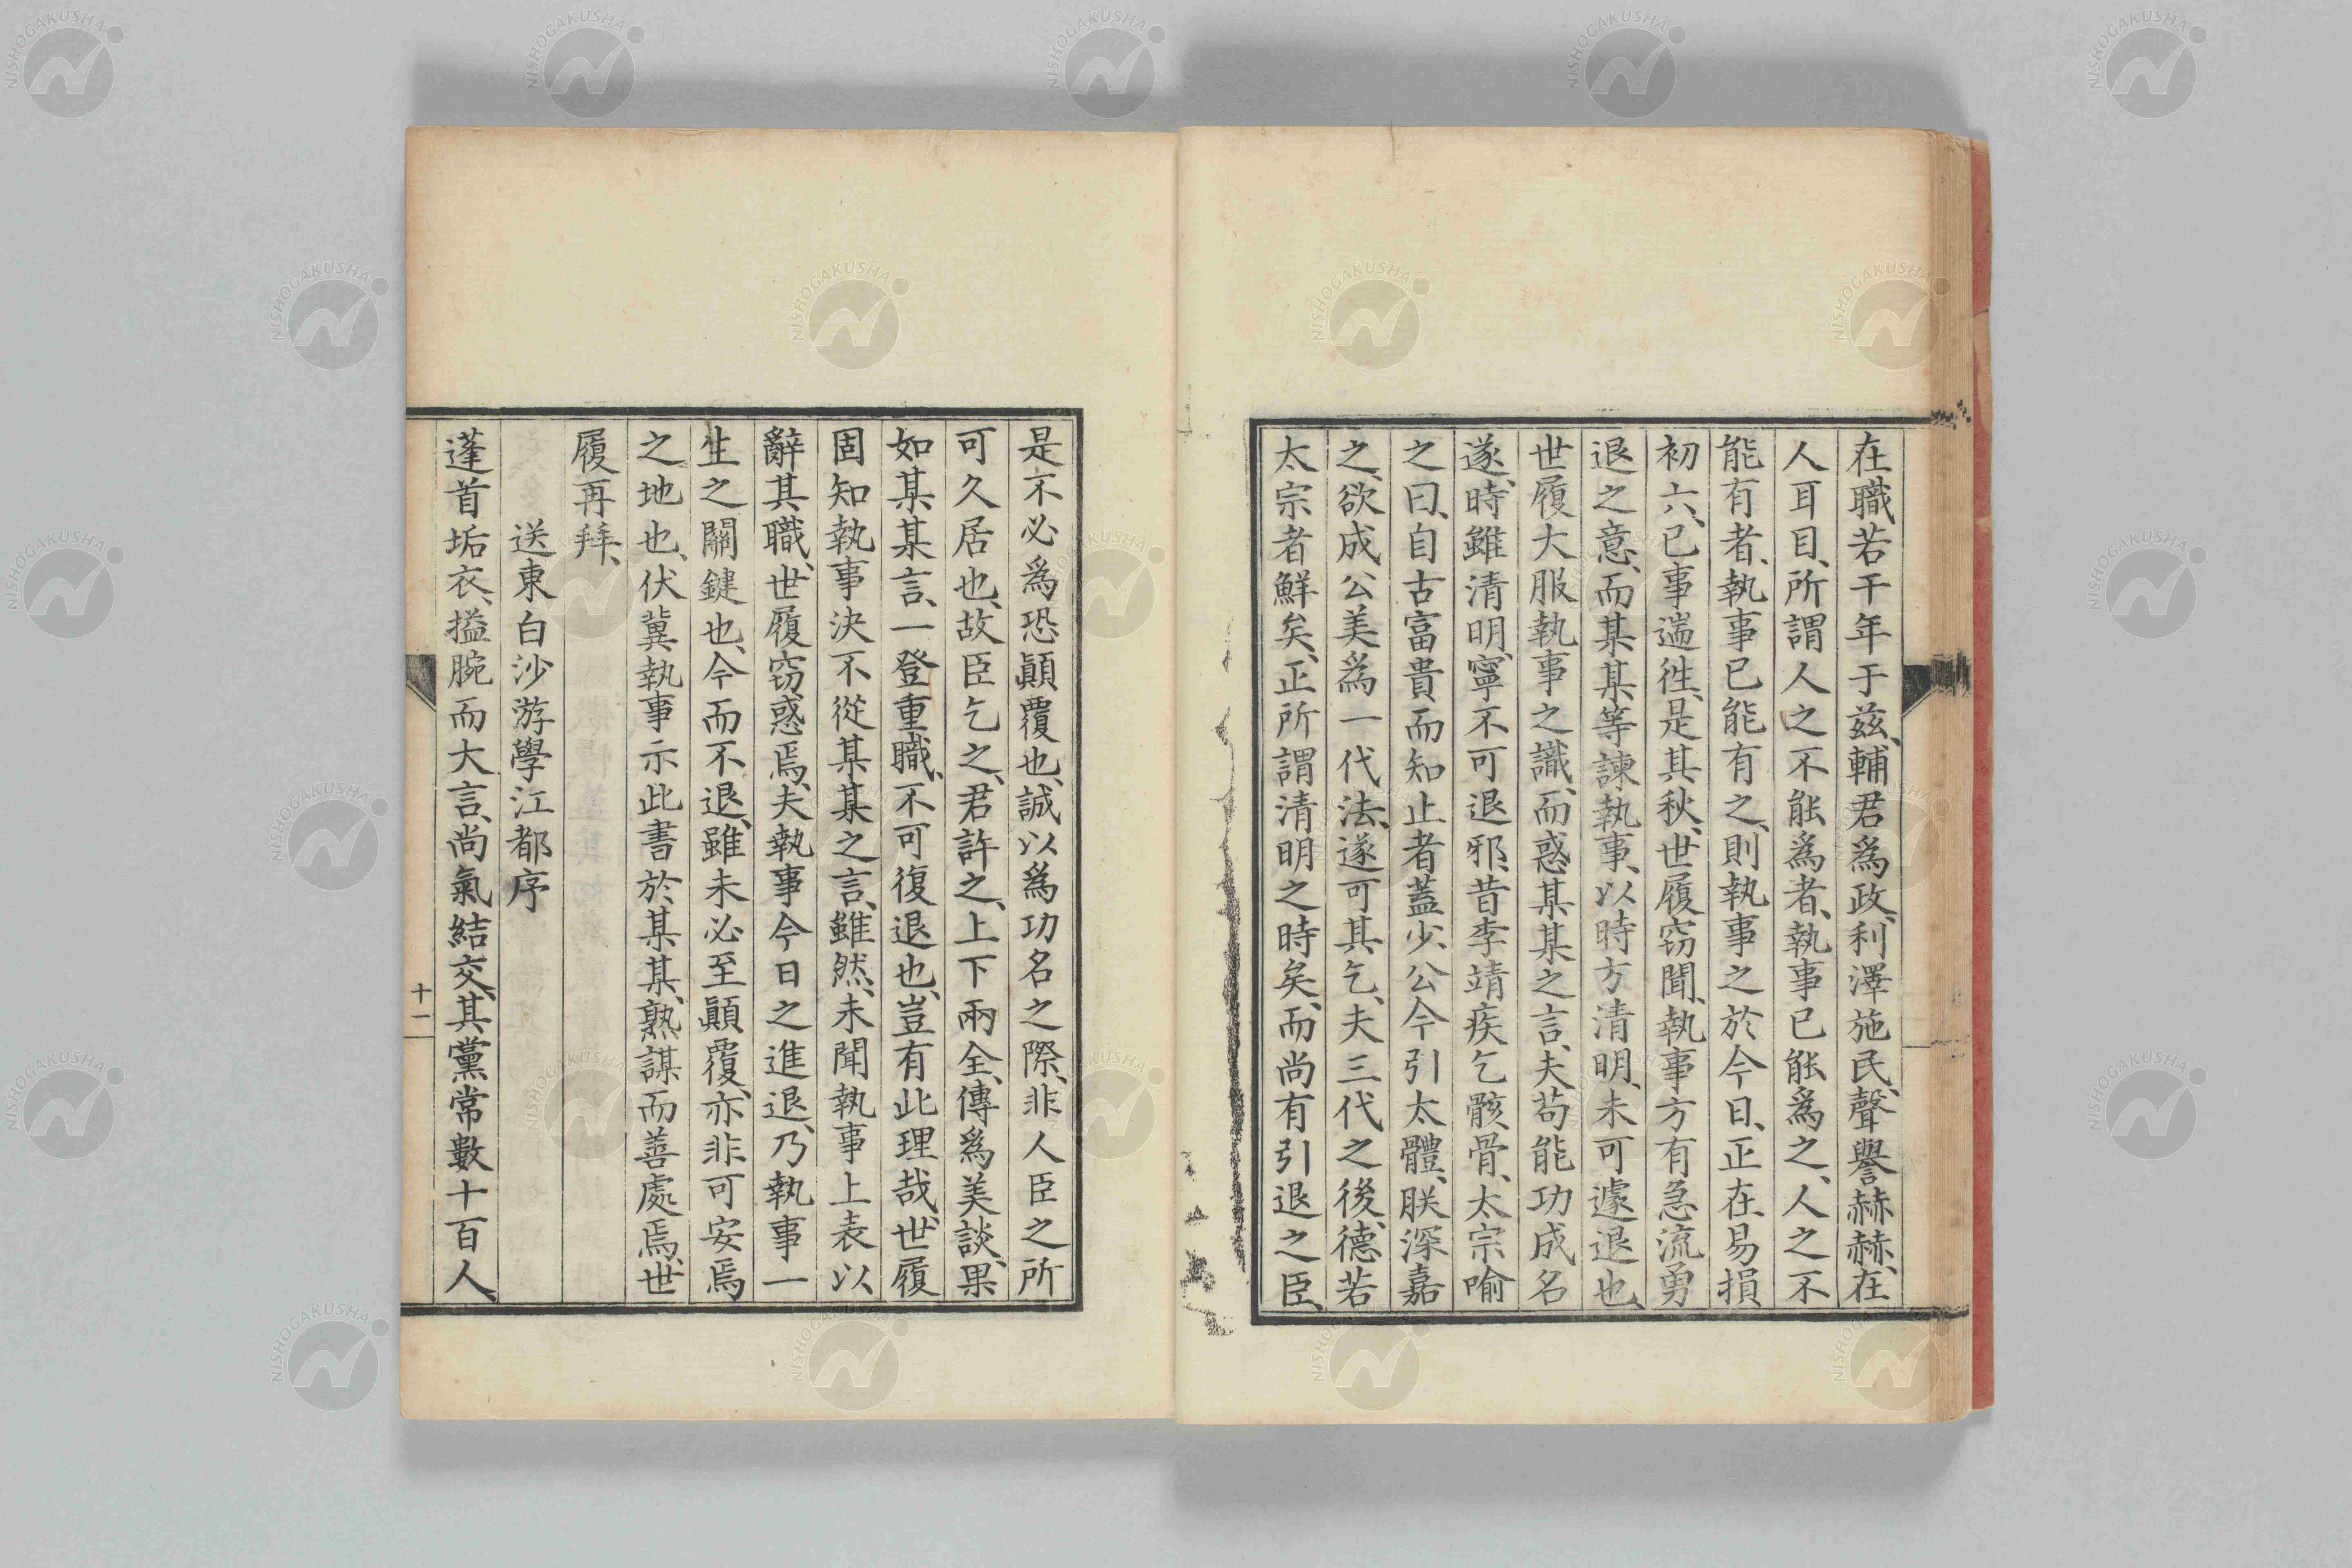 在職若干年于茲、輔君爲政、利澤施民、聲譽赫赫、在
人耳目、所謂人之不能爲者、執事已能爲之、人之不
能有者、執事已能有之、則執事之於今日、正在易損
初六、已事遄徃、是其秋、世履窃聞、執事方有急流勇
退之意、而某某等諫執事、以時方清明、未可遽退也、
世履大服執事之識、而惑某某之言、夫苟能功成名
遂、時雖清明、寧不可退邪、昔李靖疾乞骸骨、太宗喻
之曰、自古富貴而知止者蓋少、公今引太體、朕深嘉
之、欲成公美爲一代法、遂可其乞、夫三代之後、德若
太宗者鮮矣、正所謂清明之時矣、而尚有引退之臣、
是不必爲恐顚覆也、誠以爲功名之際、非人臣之所
可久居也、故臣乞之、君許之、上下兩全、傳爲美談、果
如某某言、一登重職、不可復退也、豈有此理哉、世履
固知執事決不從某某之言、雖然、未聞執事上表以
辭其職、世履窃惑焉、夫執事今日之進退、乃執事一
生之關鍵也、今而不退、雖未必至顚覆、亦非可安焉
之地也、伏冀執事示此書於某某、熟謀而善處焉、世
履再拜、
送東白沙游學江都序
蓬首垢衣、搤腕而大言、尚氣結交、其黨常數十百人、
十一
NISHOGAKUSHA